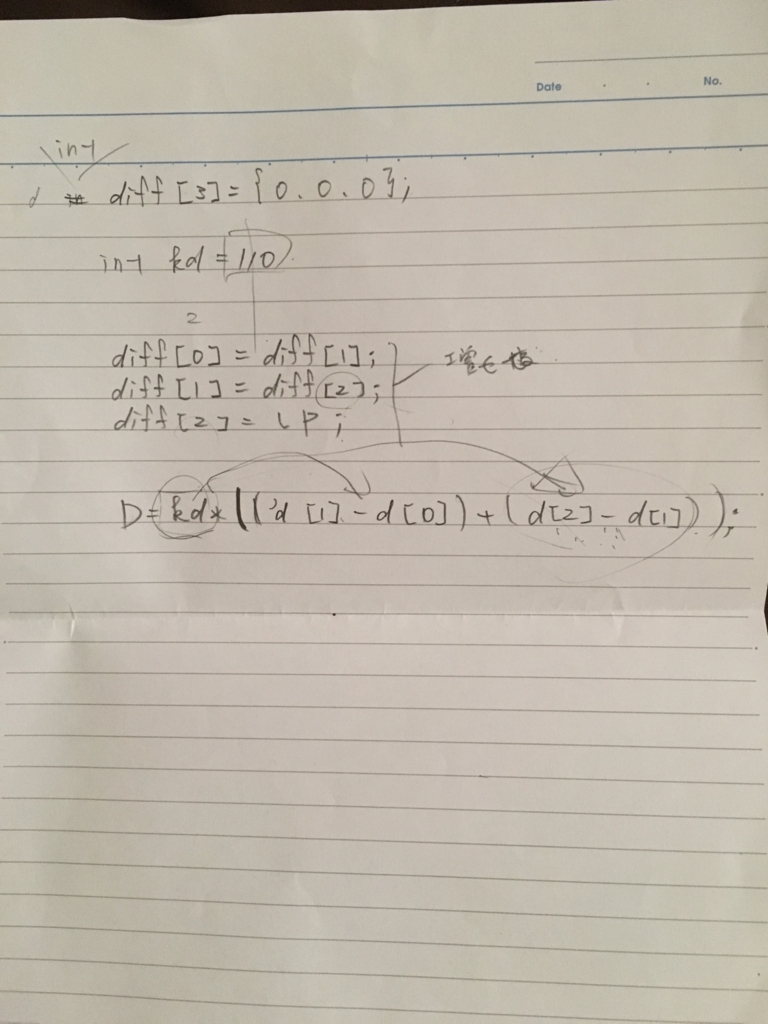 Date . . No.
int
diff [3] = {0.0.0};
int kd = 110
2
diff [0] = diff [1];
diff [1] = diff [2];
diff [2] = LP;
D = kd * ((d [1] - d [0]) + (d[2] - d[1]));